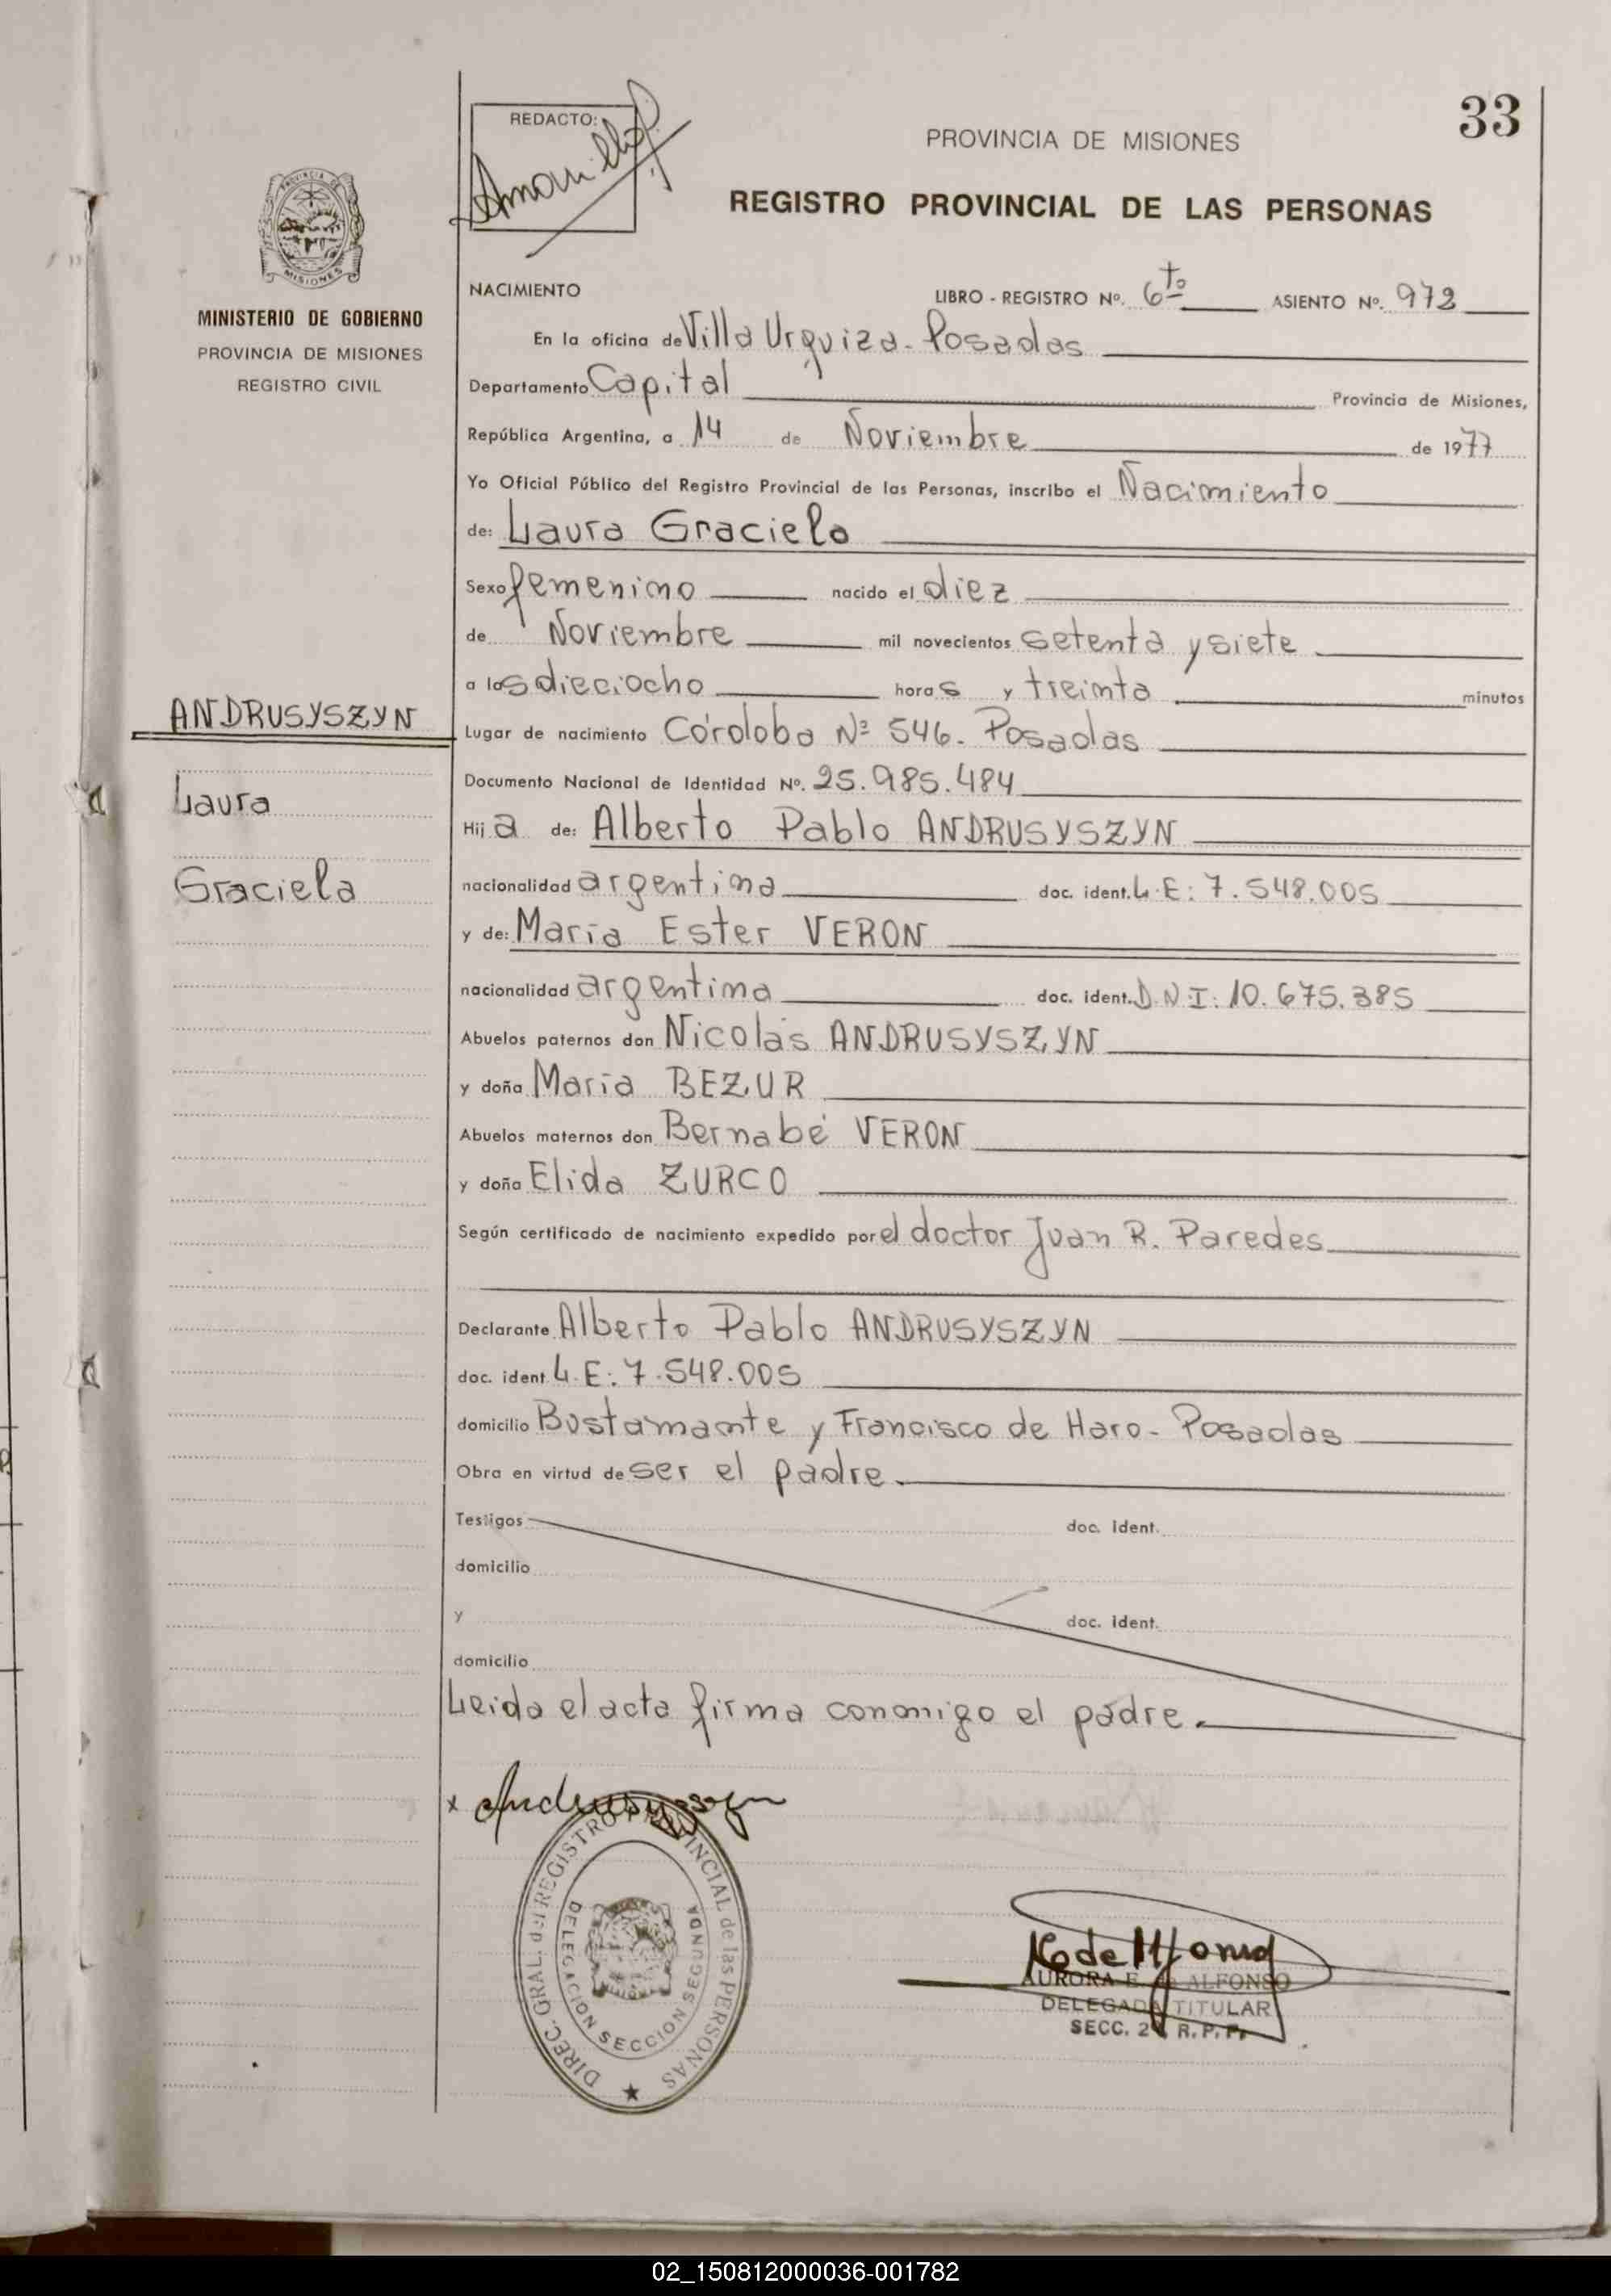 33
REDACTO:
PROVINCIA DE MISIONES
REGISTRO PROVINCIAL DE LAS PERSONAS
PROVINCIA DE
MISIONES
MINISTERIO DE GOBIERNO
PROVINCIA DE MISIONES
REGISTRO CIVIL
NACIMIENTO LIBRO - REGISTRO Nº. 6to ASIENTO Nº. 972
En la oficina de Villa Urquiza - Posadas
Departamento Capital Provincia de Misiones,
República Argentina, a 14 de Noviembre de 1977
Yo Oficial Público del Registro Provincial de las Personas, inscribo el Nacimiento
de: Laura Graciela
Sexo femenino nacido el diez
de Noviembre mil novecientos setenta y siete
a las dieciocho horas y treinta minutos
ANDRUSYSZYN
Lugar de nacimiento Córdoba Nº 546. Posadas
Documento Nacional de Identidad Nº. 25.985.484
Laura
Hija de: Alberto Pablo ANDRUSYSZYN
Graciela
nacionalidad argentina doc. ident. L.E: 7.548.005
y de: María Ester VERON
nacionalidad argentina doc. ident. D.N.I: 10.675.385
Abuelos paternos don Nicolás ANDRUSYSZYN
y doña María BEZUR
Abuelos maternos don Bernabé VERON
y doña Elida ZURCO
Según certificado de nacimiento expedido por el doctor Juan R. Paredes
Declarante Alberto Pablo ANDRUSYSZYN
doc. ident. L.E: 7.548.005
domicilio Bustamante y Francisco de Haro - Posadas
Obra en virtud de ser el padre.
Testigos doc. ident.
domicilio
y doc. ident.
domicilio
Leida el acta firma conmigo el padre.
x Andrusyszyn
DIREC. GRAL. del REGISTRO PROVINCIAL de las PERSONAS
DELEGACION SECCION SEGUNDA
AURORA E. de ALFONSO
DELEGADA TITULAR
SECC. 2ª R.P.P.
02_150812000036-001782